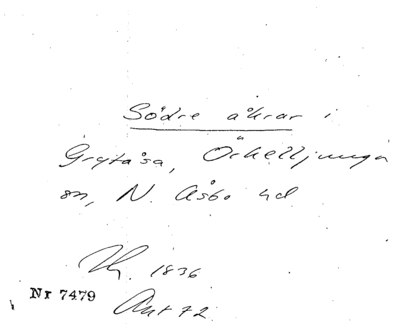 Södre åkrar i
Grytåsa, Örkelljunga
sn, N. Åsbo hd
Hg. 1836
Nr 7479
Ant 72